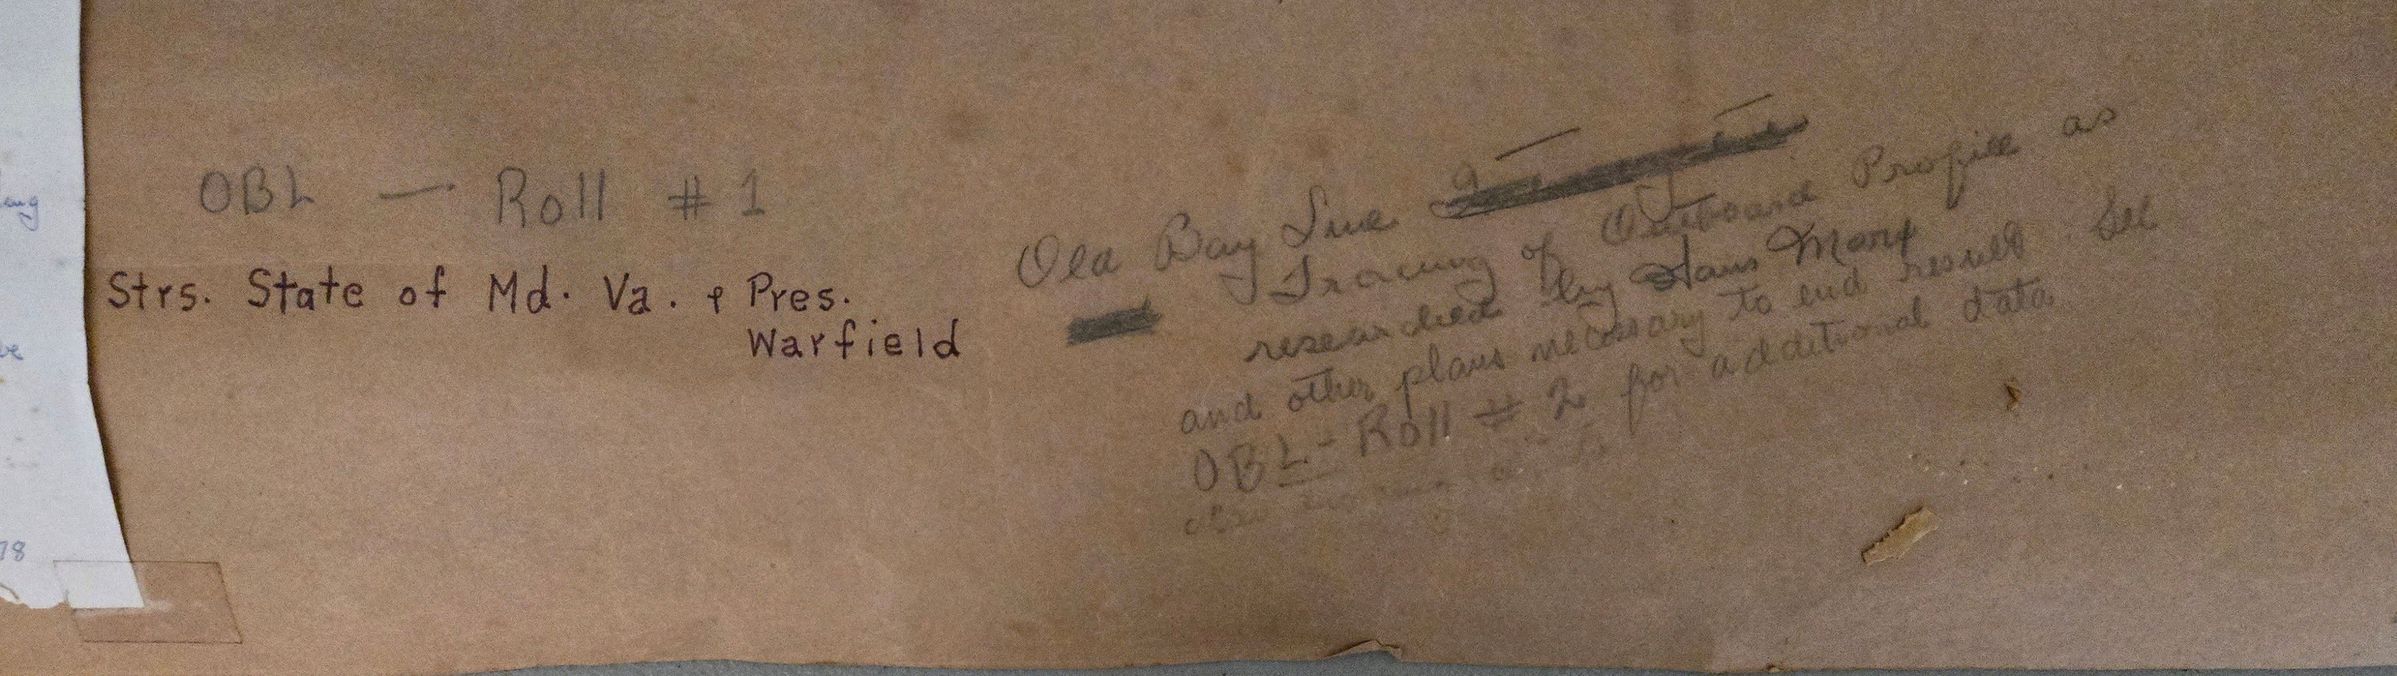 OBL — Roll #1
Strs. State of Md. Va. & Pres.
Warfield
Old Bay Line
Tracing of Outboard Profile as
researched by Hans Marx
and other plans necessary to end result. See
OBL - Roll # 2 for additional data
eng
78